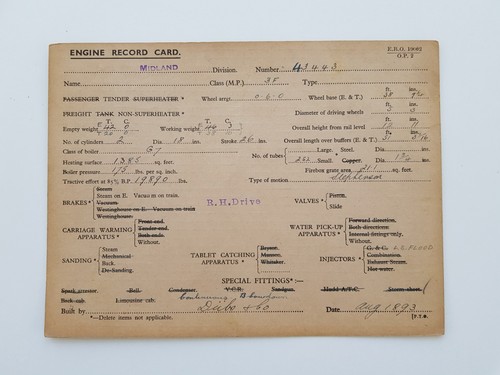 ENGINE RECORD CARD.
E.R.O. 19082
O.P. 2
MIDLAND Division. Number: 43443
Name Class (M.P.) 3F Type
PASSENGER TENDER SUPERHEATER * Wheel arrgt. 0-6-0 Wheel base (E. & T.) ft. 38 ins.
FREIGHT TANK NON-SUPERHEATER * Diameter of driving wheels ft. 5 ins. 3
Empty weight T. C. Working weight T. C. Overall height from rail level
No. of cylinders 2 Dia. 18 ins. Stroke 26 ins. Overall length over buffers (E. & T.)
Class of boiler G7 No. of tubes: Large. Steel. Dia. 1¾ ins.
Heating surface 1385 sq. feet. Small Copper.
Boiler pressure lbs. per sq. in. Firebox grate area 21.1 sq. feet.
Tractive effort at 85% B.P. 19890 lbs. Type of motion Stephenson
BRAKES * Steam
Steam on E. Vacuum on train.
Vacuum.
Westinghouse on E. Vacuum on train
Westinghouse
R.H. Drive
VALVES * Piston.
Slide.
CARRIAGE WARMING APPARATUS * Front end.
Tender end.
Both ends.
Without.
WATER PICK-UP APPARATUS * Forward direction.
Both directions
Internal fittings only.
Without.
SANDING * Steam
Mechanical
Back.
De-Sanding.
TABLET CATCHING APPARATUS * Bryson.
Manson.
Whitaker.
INJECTORS * G. & C.
Combination.
Exhaust Steam.
Hot water.
SPECIAL FITTINGS *:—
Spark arrester Bell. Condenser. V.C.R. Sandgun. Hudd A.T.C. Steam chest
Back cab. Limousine cab. Continuous Blowdown
Built by Dübs & Co Date Aug 1893
*—Delete items not applicable. [P.T.O.